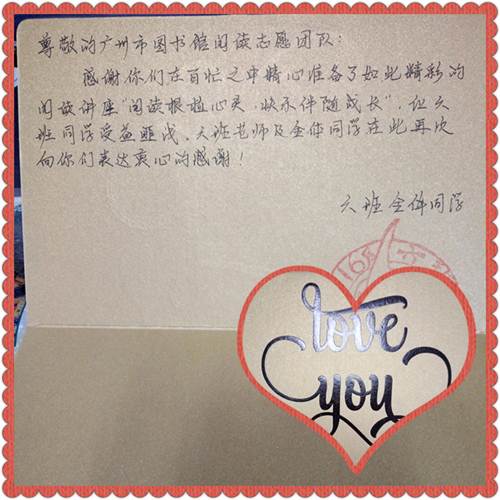 尊敬的广州市图书馆阅读志愿团队：
感谢你们在百忙之中精心准备了如此精彩的
阅读讲座“阅读根植心灵，快乐伴随成长”，让六
班同学受益匪浅，六班老师及全体同学在此再次
向你们表达衷心的感谢！
六班全体同学
love
you